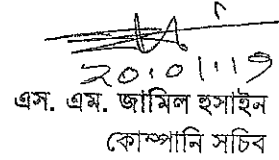 20.01.19
এস. এম. জামিল হুসাইন
কোম্পানি সচিব